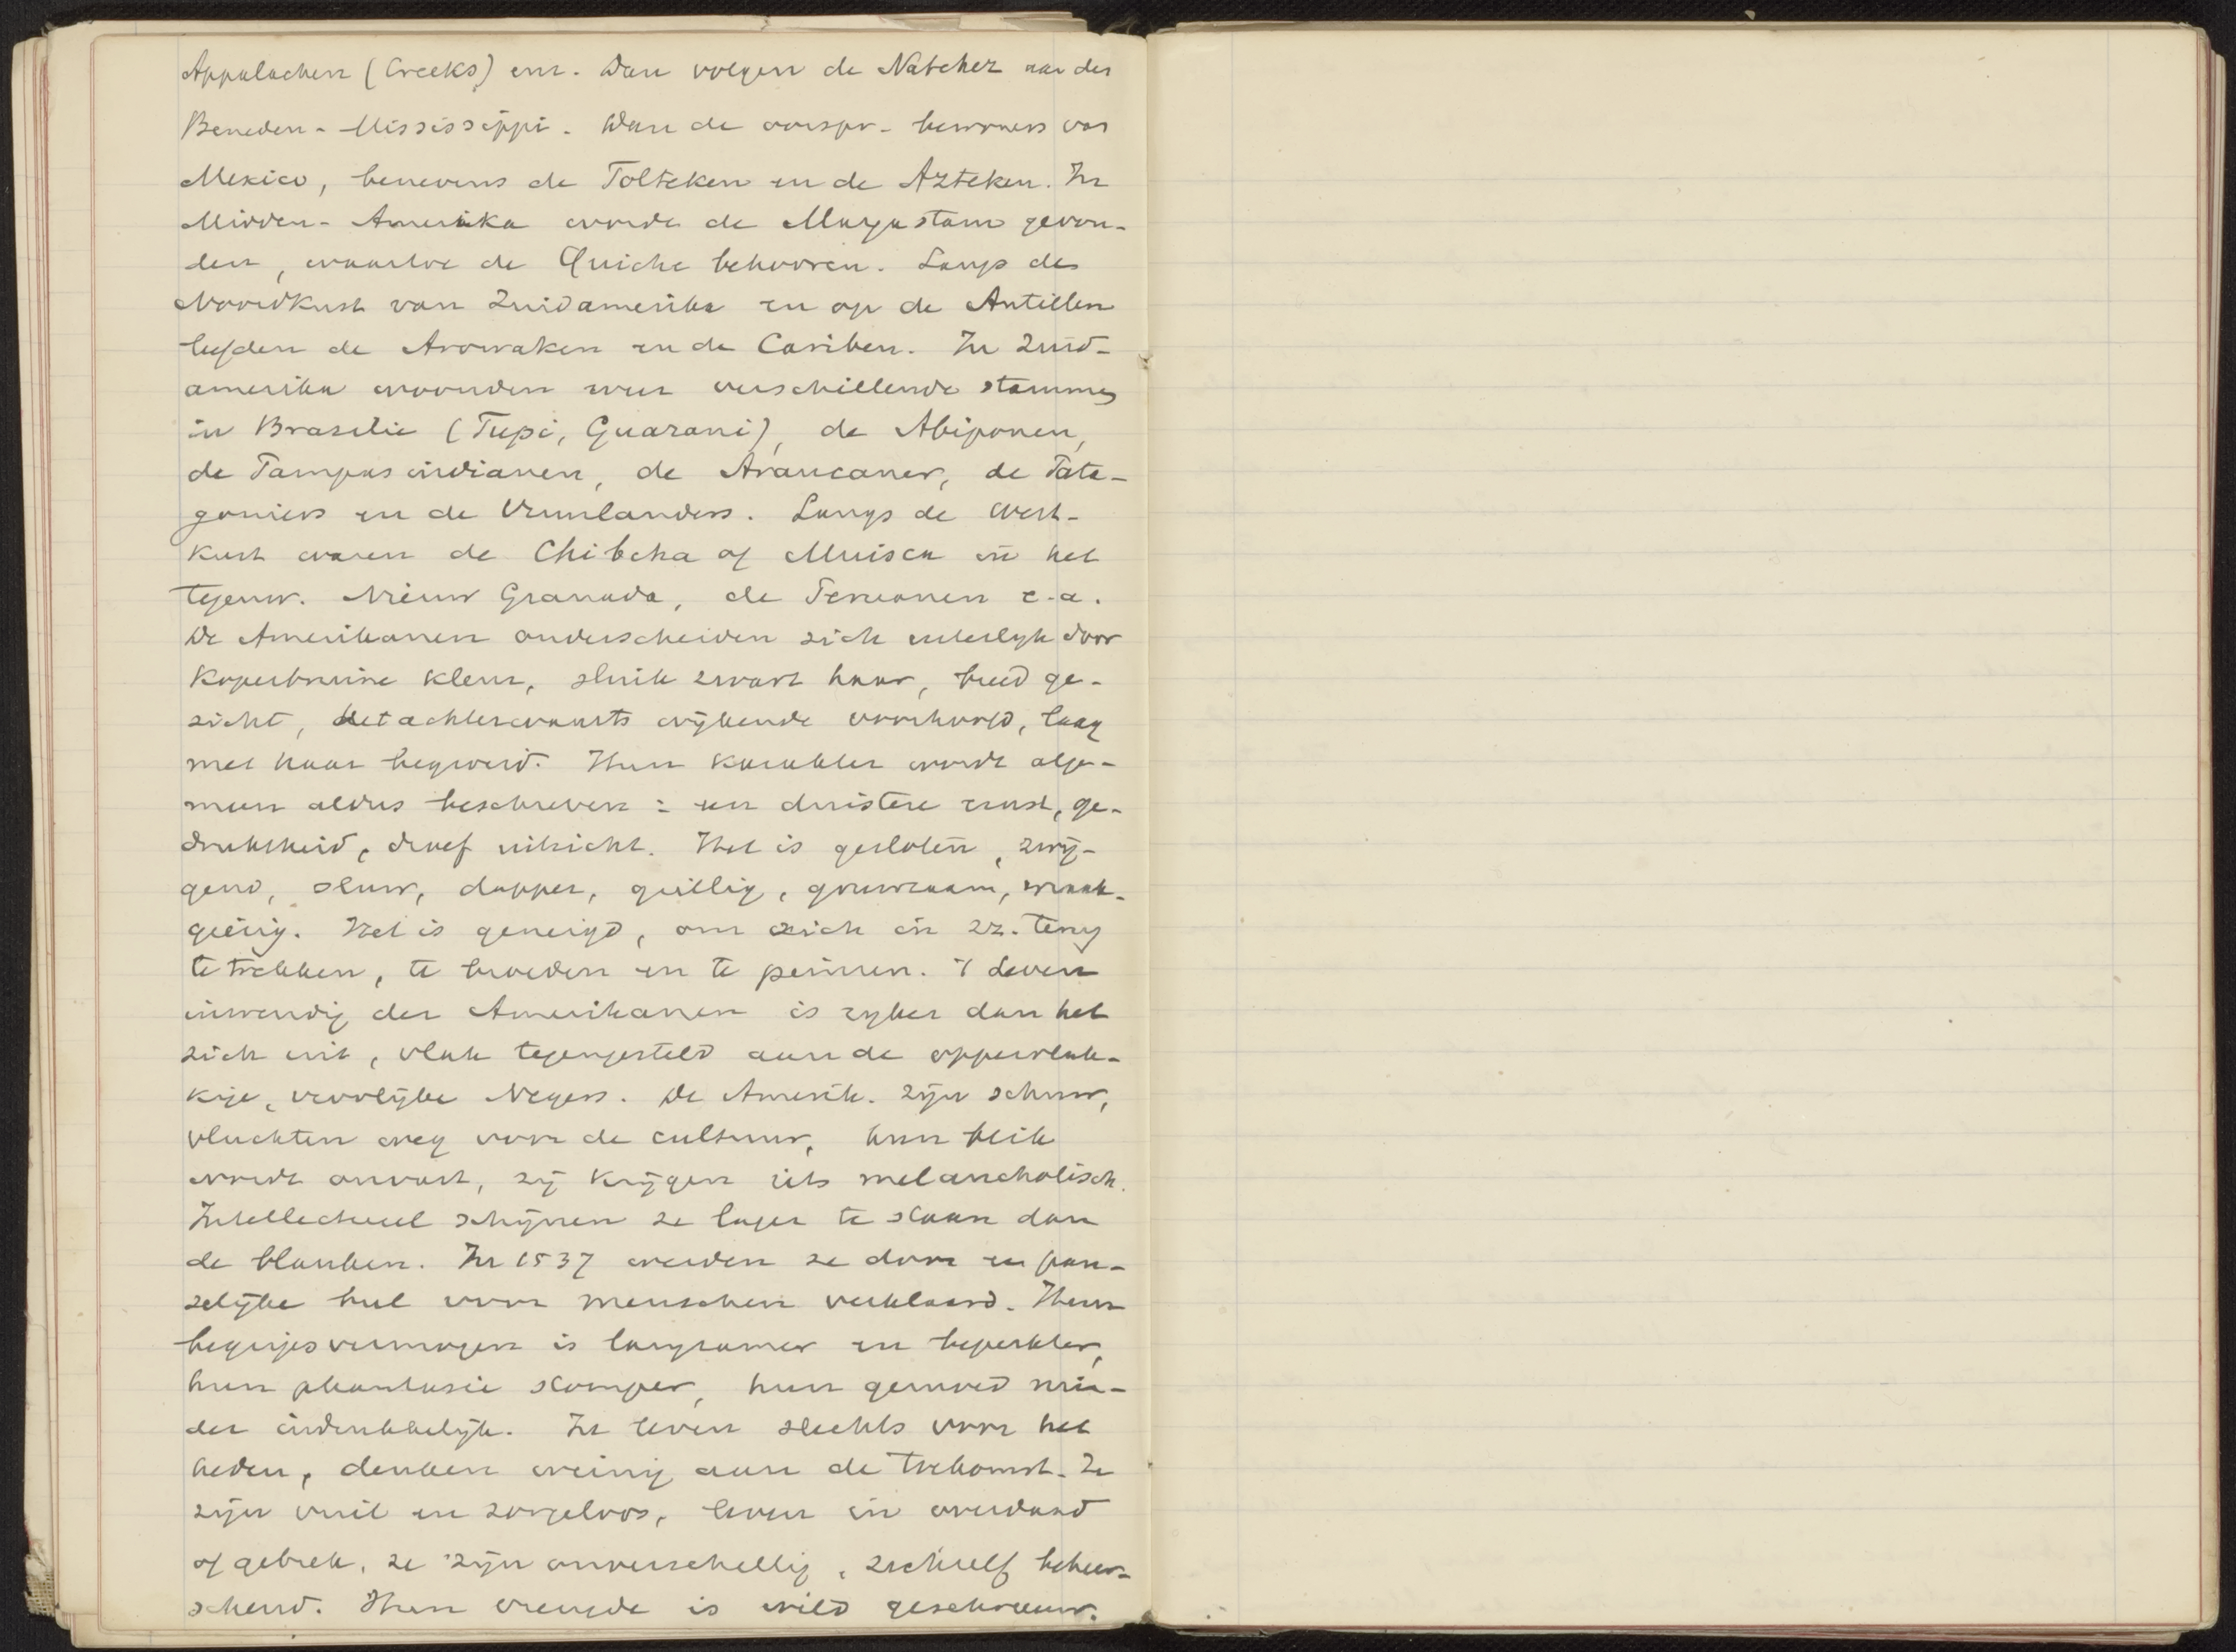 Appalachen (Creeks) enz. Dan volgen de Natchez aan den
Beneden-Mississippi. Dan de oorspr. bewoners van
Mexico, benevens de Tolteken en de Azteken. In
Midden-Amerika wordt de Mayastam gevon-
den, waartoe de Quiche behooren. Langs de
Noordkust van Zuidamerika en op de Antillen
leefden de Arowaken en de Cariben. In Zuid-
amerika woonden weer verschillende stammen
in Brazilië (Tupi, Guarani), de Abiponen,
de Pampasindianen, de Araucaner, de Pata-
goniers en de Vuurlanders. Langs de West-
kust waren de Chibcha of Muisca in het
tegenw. Nieuw Granada, de Peruanen e.a.
De Amerikanen onderscheiden zich uiterlyk door
koperbruine kleur, sluik zwart haar, breed ge-
zicht, het achterwaarts wijkende voorhoofd, laag
met haar begroeid. Hun karakter wordt alge-
meen aldus beschreven: een duistere ernst, ge-
druktheid, droef uitzicht. Het is gesloten, zwij-
gend, sluw, dapper, grillig, gruwzaam, wraak-
gierig. Het is geneigd, om zich in zz. terug
te trekken, te broeden en te peinzen. 't Leven
inwendig der Amerikanen is ryker dan het
zich uit, vlak tegengesteld aan de oppervlak-
kige, vroolijke Negers. De Amerik. zijn schuw,
vluchten weg voor de cultuur, hun blik
wordt onvast, zij krijgen iets melancholisch.
Intellectueel schijnen ze lager te staan dan
de blanken. In 1537 werden ze door een pau-
selijke bul voor menschen verklaard. Hun
begripsvermogen is langzamer en beperkter,
hun phantasie stomper, hun gemoed min-
der indrukkelijk. Ze leven slechts voor het
heden, denken weinig aan de toekomst. Ze
zijn vuil en zorgeloos, leven in overdaad
of gebrek, ze zijn onverschillig, zichzelf beheer-
schend. Hun vreugde is wild geschreeuw.